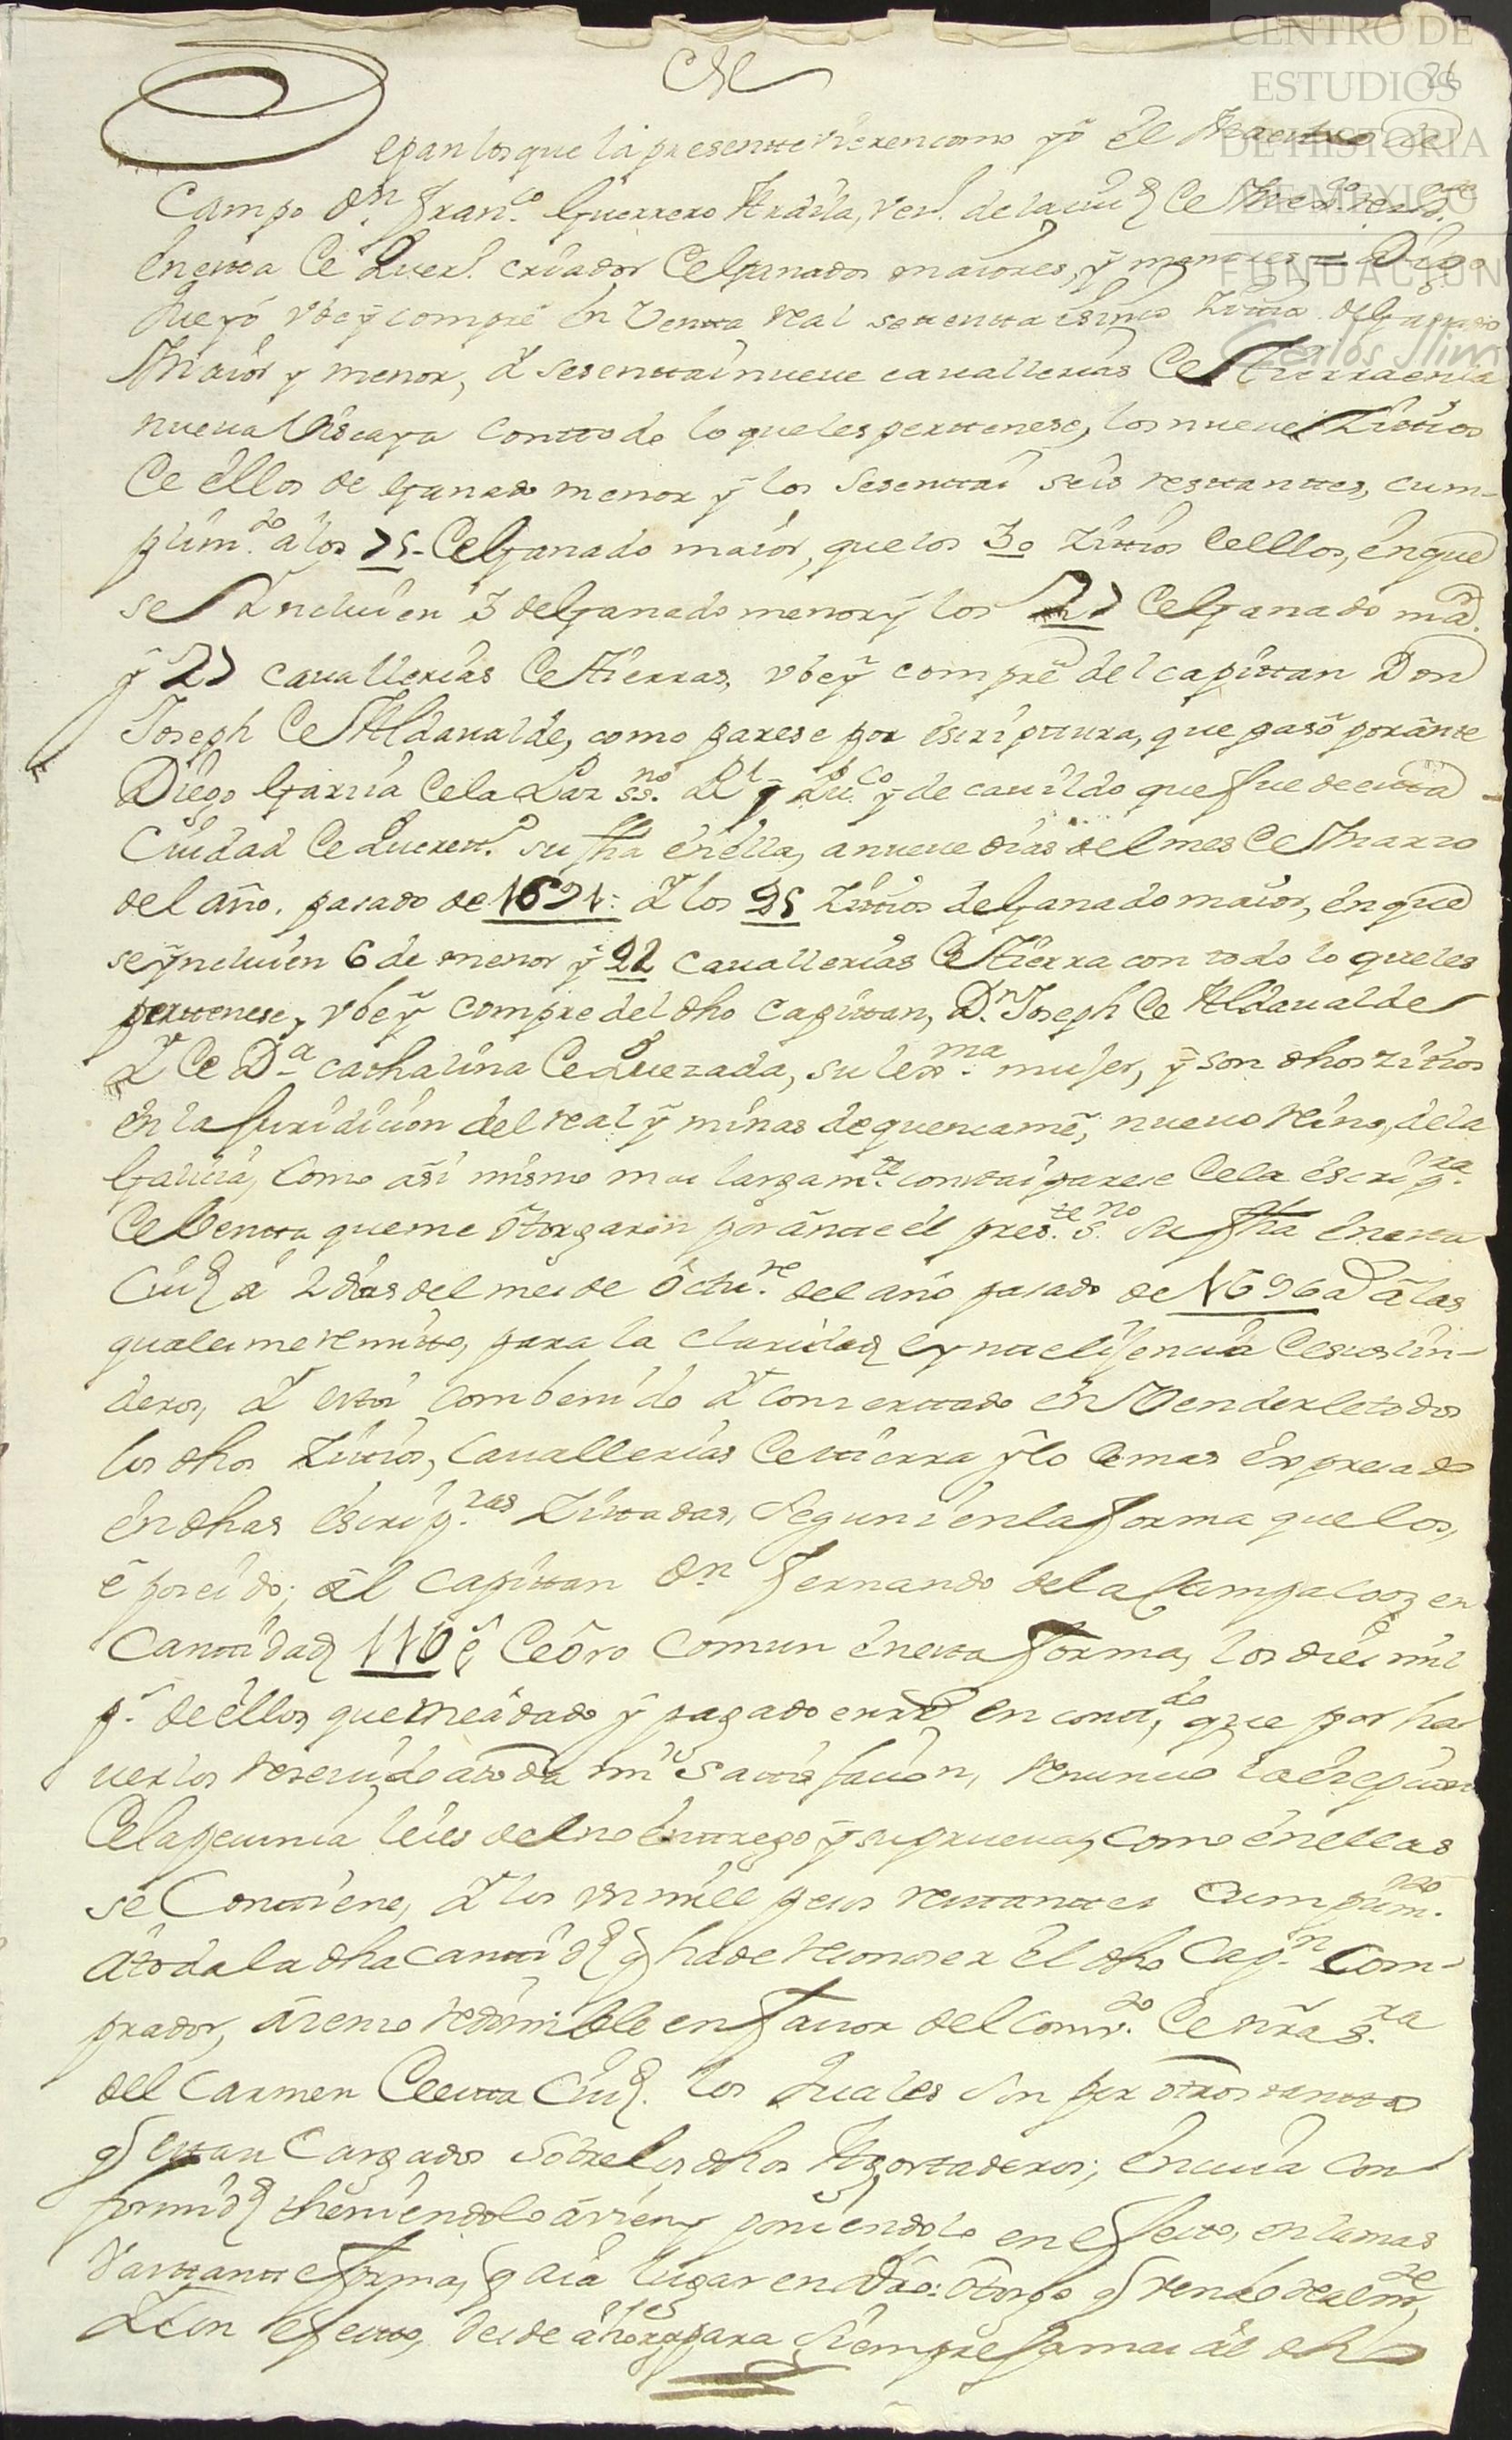 CENTRO DE
ESTUDIOS
DE HISTORIA
DE MEXICO
FUNDACIÓN
Carlos Slim
26
epan los que la presentte vieren como yo el Maestro de
Campo Dn. Franco. Guerrero Ardila, vezo. de la ciud de
en esta de Quero. criador de ganados maiores, y menores = Digo
que yo vbe y compré en Ventta real setentta i sinco zittios de ganado
Maior y menor, Y sesentta i nueve cauallerias de Tierra en la
nueua Viscaya con ttodo lo que les perttenese, los nueve zittios
de ellos de ganado menor y los sesentta i seis resttanttes, cum-
plimto. a los 75- de ganado maior, que los 30 zittios de ellos, en que
se Yncluien 3 de ganado menor y los 27 de ganado mar.
y 27 cauallerias de tierras, vbe y compré del capittan Don
Joseph de Aldaualde, como parese por escripttura, que pasó por ante
Diego Garsia de la Paz ssno. Rl. y Puco. y de cauildo que fue de estta
Ciudad de Querett.o su fha en ella, a nueve dias del mes de Marzo
del año. pasado de 1691: Y los 45 zittios de ganado maior, en que
se yncluien 6 de menor y 42 cauallerias de tierra con todo lo que les
perttenese, vbe y compre del dho capittan, Dn. Joseph de Aldaualde
Y de Da. cathalina de Quezada, su lexma. mujer, y son dhos zitios
en la Juridicion del real y minas de quencamé, nueuo reino, de la
Galicia, como asi mismo mas largamte. constta i parese de la escripra.
de Ventta que me otorgaron por ante el preste. sno. su fha en estta
Ciud a 2 dias del mes de octure. del año pasado de 1696 as a las
quales me remitto, para la claridad e ynteligencia de sus lin-
deros, Y estoi combenido Y conserttado en Venderle todos
los dhos zittios, cauallerias de tierra y lo demas expresado
en dhas escripras. zittadas, segun i en la forma que los,
e poseido; al capittan Dn Fernando de la Campa Cos en
canttidad 11U ps de oro comun en estta forma, los dies mil
ps. de ellos que me á dado y pagado en rs en conttdo, que por ha
uerlos reseuido a toda mi sattisfasion, renuncio la exepsion
de la pecunia leies del no enttrego y su prueua, como en ellas
se Conttiene, Y los vn mill pesos resttanttes cumplimto.
á toda la dha canttid q ha de reconoser el dho Capn. Com-
prador, á senso redimible en fauor del convto. de nra sra.
del Carmen de estta Ciud. los quales son por otros tanttos
q esttan cargados sobre los dhos Agosttaderos; en cuia con
formid theniendolo á vien y poniendolo en efectto, en la mas
vasttantte forma, q aia lugar en dro: otorgo q vendo realmte,
Y con efectto, desde ahora para siempre Jamas al dho